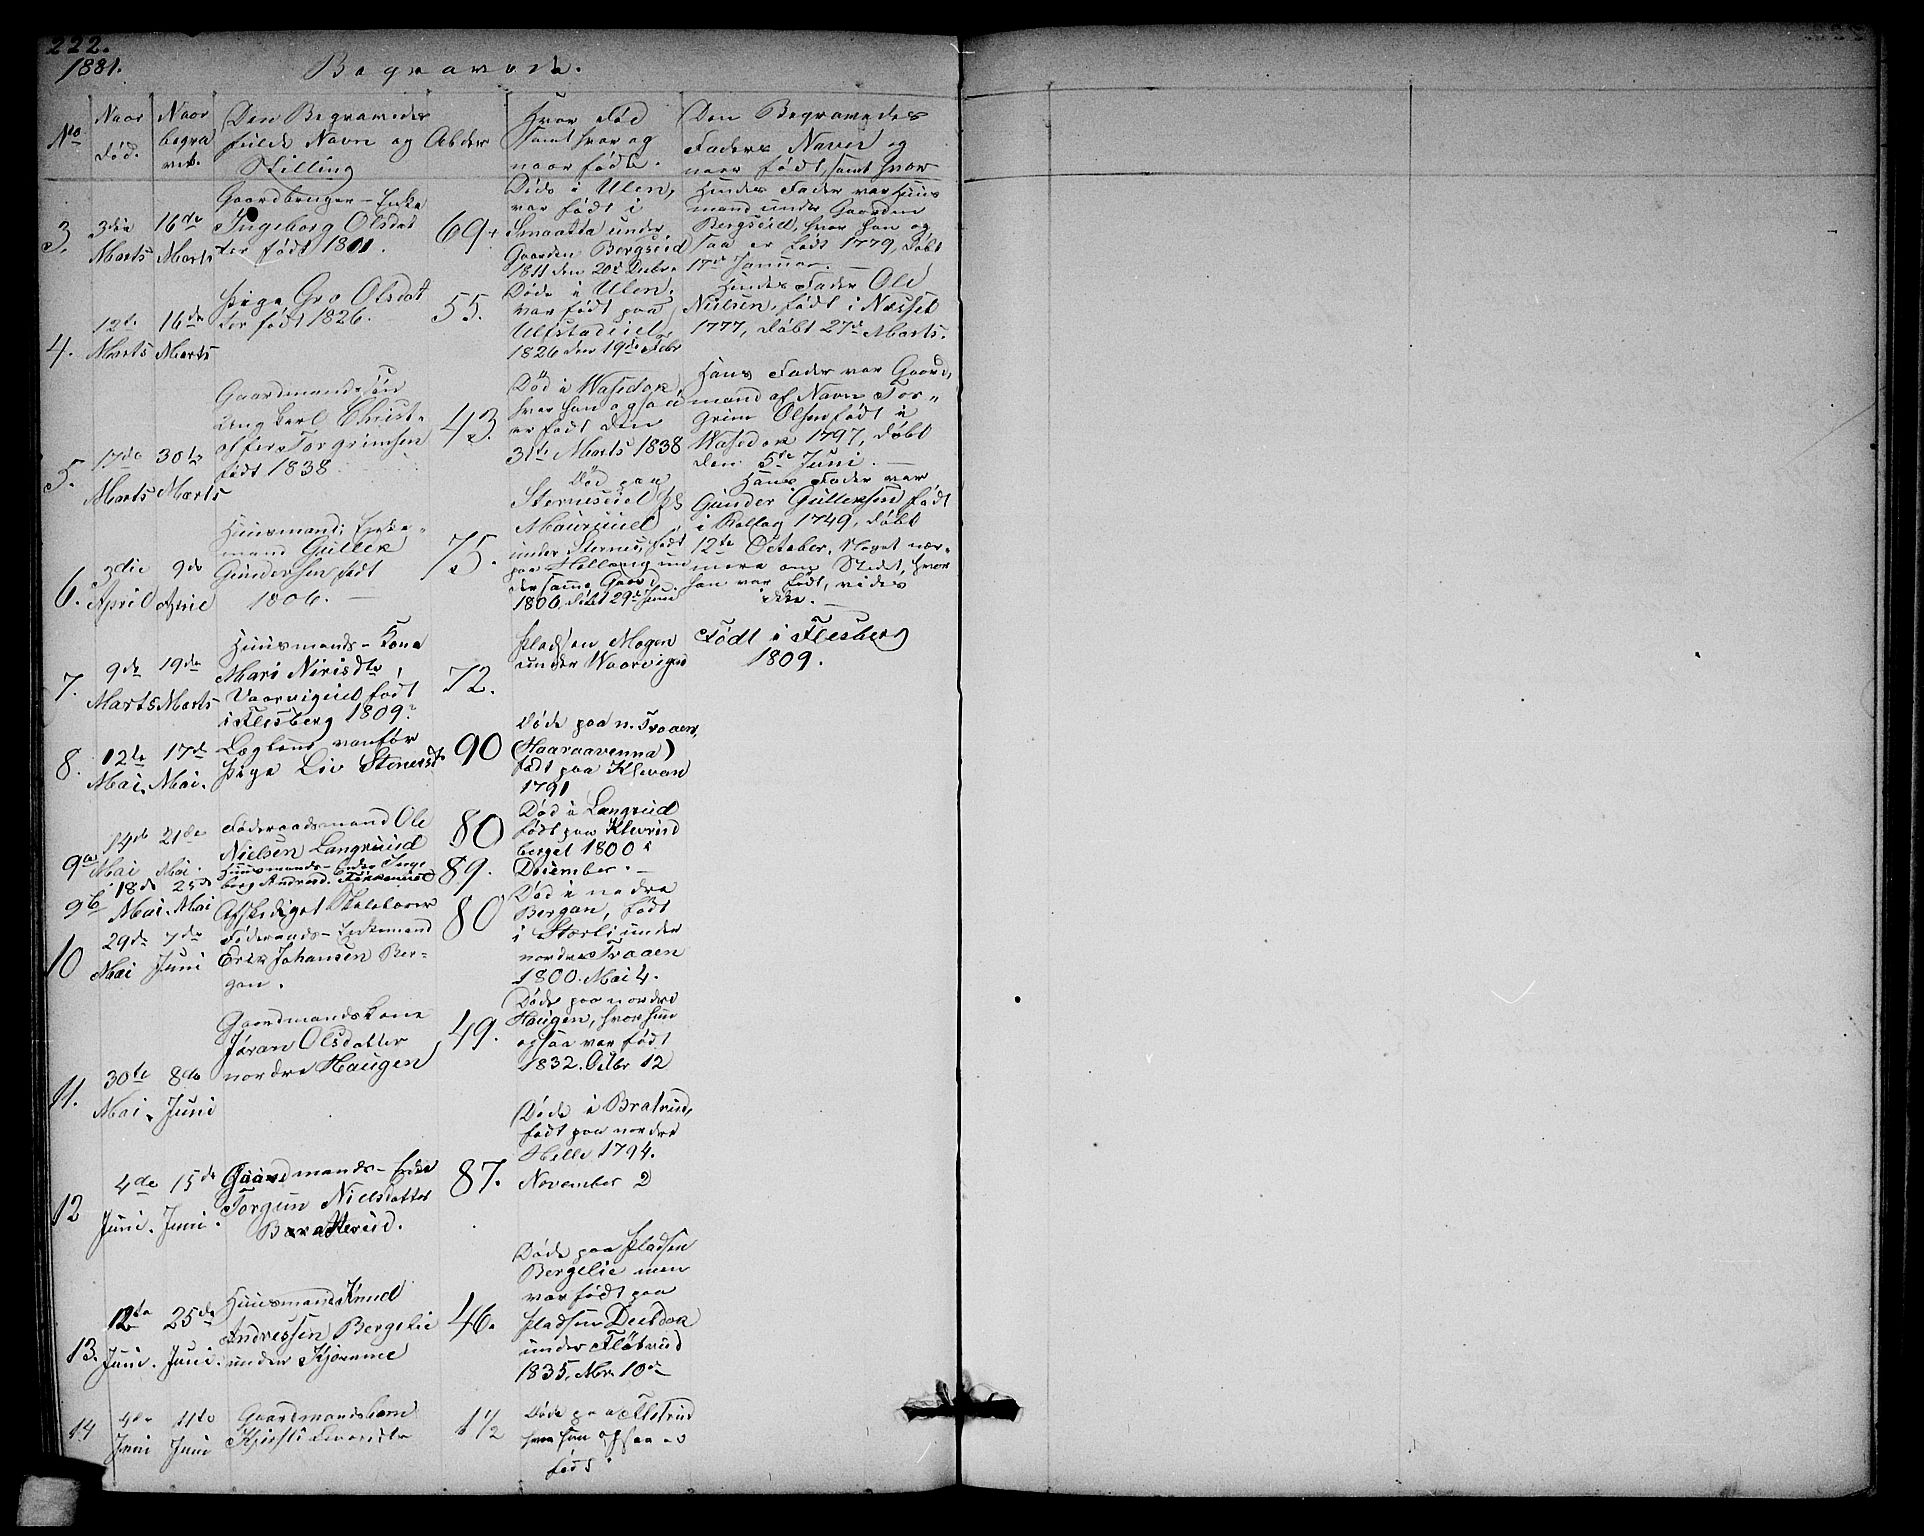 222.
1881.
Begravede.
No
Naar
død.
Naar
begra
vet.
Den Begravedes
fulde Navn og
Stilling
Alder
Hvor død
samt hvor og
naar født.
Den Begravedes
Faders Navn og
naar født, samt hvor
3.
3die
Marts
16de
Marts
Gaardbruger-Enke
Ingeborg Olsdat
ter født 1811.
69.
Døde i Ulen,
var født i
Smaatta under
Gaarden Bergseiid
1811 den 20de Decbr.
Hendes Fader var Huus
mand under Gaarden
Bergseiid, hvor han og
saa er født 1779, døbt
17de Januar.
4.
12te
Marts
16de
Marts
Pige Gro Olsdat
ter født 1826.
55.
Døde i Ulen,
var født paa
Ulfstadeiet
1826 den 19de Febr
Hendes Fader Ole
Nielsen, født i Næsset
1777, døbt 27de Marts.
5.
17de
Marts
30te
Marts
Gaardmandssøn
ung karl Christ-
offer Torgrimsen
født 1838
43.
Død i Wasedok
hvor han ogsaa
er født den
31te Marts 1838
Hans Fader var Gaard,
mand af Navn Tor-
grim Olsen født i
Wasedok 1797, døbt
den 5te Juni.
6.
3die
April
9de
April
Huusmand; Enke-
mand Gullek
Gundersen født
1806.
75.
Død paa
Sterneseiet
under Sternes, født
paa Hellavig un
der samme Gaard
1806, døbt 29de Juni
Hans Fader var
Gunder Gulleksen født
i Rollag 1749, døbt
12te October, Noget nær-
mere om Stedet, hvor
han var født, vides
ikke.
7.
9de
Marts
19de
Marts
Huusmands-Kone
Mari Nirisdtr
Vaarvigeiet født
i Flesberg 1809.
72.
Pladsen Mogen
under Waarviged
Født i Flesberg
1809.
8.
12te
Mai.
17de
Mai.
Lægdens vanfør
Pige Liv Stenersdtr
90
Døde paa n. Traaen
(Haaraavenna)
født paa Klevan
1791
9a
14de
Mai
21de
Mai.
Føderaadsmand Ole
Nielsen Langruud
80
Død i Langruud
født paa Klevrud
berget 1800 i
December.
9b
18de
Mai.
25de
Mai
Huusmands-Enke Inge
borg Andrisd.
89.
10
29de
Mai
7de
Juni
Afskediget Skolelærer
Føderaads-Enkemand
Erik Johansen Ber-
gan.
80
Død i nedre
Bergan, født
i Størli under
nordre Traaen
1800. Mai 4.
11.
30te
Mai.
8de
Juni
Gaardmandskone
Jøran Olsdatter
nordre Haugen
49.
Døde paa nordre
Haugen, hvor hun
ogsaa var født
1832. Octbr 12
12
4de
Juni.
15de
Juni.
Gaardmands-Enke
Torgun Nielsdatter
Bratterud.
87.
Døde i Bratrud,
født paa nordre
Helle 1794.
November 2
13.
12te
Juni.
25de
Juni.
Huusmand Knud
Andressen Bergelie
under Kjomme
46.
Døde paa Pladsen
Bergelie men
var født paa
Pladsen Deildok
under Fløterud
1835, Mbr. 10de
14
4de
Juni
11te
Juni
Gaardmandsbarn
Kjersti
1½
Døde paa
hvor hun ogsaa er
født.